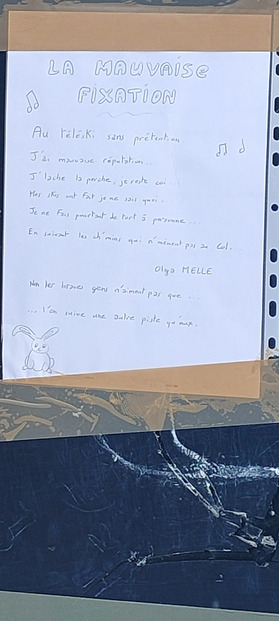 LA MAUVAISE
FIXATION
Au téléski sans prétention
J'ai mauvaise réputation...
J'lâche la perche, je reste coi...
Mes skis ont fait je ne sais quoi.
Je ne fais pourtant de tort à personne...
En suivant les ch'mins qui n'mènent pas au Col.
Olga MELLE
Non les braves gens n'aiment pas que...
... l'on suive une autre piste qu'eux.